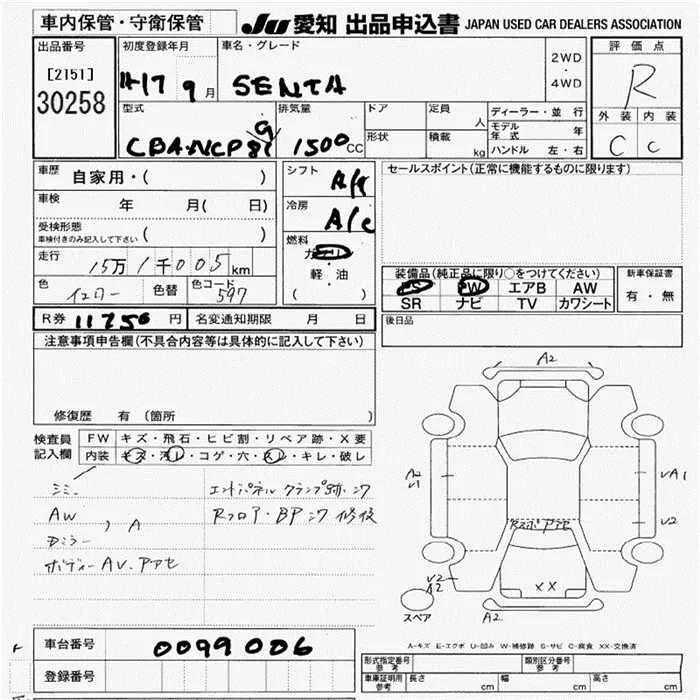 車内保管・守衛保管
JU 愛知 出品申込書 JAPAN USED CAR DEALERS ASSOCIATION
出品番号
[2151]
30258
初度登録年月
H17 9月
車名・グレード
SENTA
2WD
・
4WD
評価点
R
外装 内装
C C
型式
CBA-NCP81
9
排気量
1500cc
ドア
形状
定員 人
積載 kg
ディーラー・並行
モデル年式 年
ハンドル 左・右
車歴 自家用・( )
車検 年 月( 日)
受検形態
車検付きのみ記入して下さい ( )
走行 15万1千005km
色 イエロー 色替 色コード 597
シフト A/T
冷房 A/C
燃料
ガソリン
・
軽・油
( )
セールスポイント(正常に機能するものに限ります)
装備品(純正品に限り○をつけてください)
PS PW エアB AW
SR ナビ TV カワシート
新車保証書
有・無
R券 11750円 名変通知期限 月 日
後日品
注意事項申告欄(不具合内容等は具体的に記入して下さい)
修復歴 有 〔箇所 〕
検査員
記入欄
FW キズ・飛石・ヒビ割・リペア跡・X要
内装 キズ・汚レ・コゲ・穴・スレ・キレ・破レ
AW
A
ボディーAV.アアセ
エンドパネル クランプ跡
Rフロア・BP 修復
A2
A2
V1
VA1
V2
XX
V2
A2
A2
スペア
A-キズ E-エクボ U-凹み W-補修跡 S-サビ C-腐食 XX-交換済
車台番号 0099006
登録番号
型式指定番号
参考
類別区分番号
参考
車庫証明用
参考
長さ cm 幅 cm 高さ cm